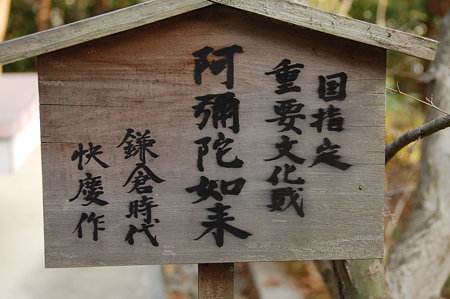 国指定
重要文化戝
阿彌陀如来
鎌倉時代
快慶作